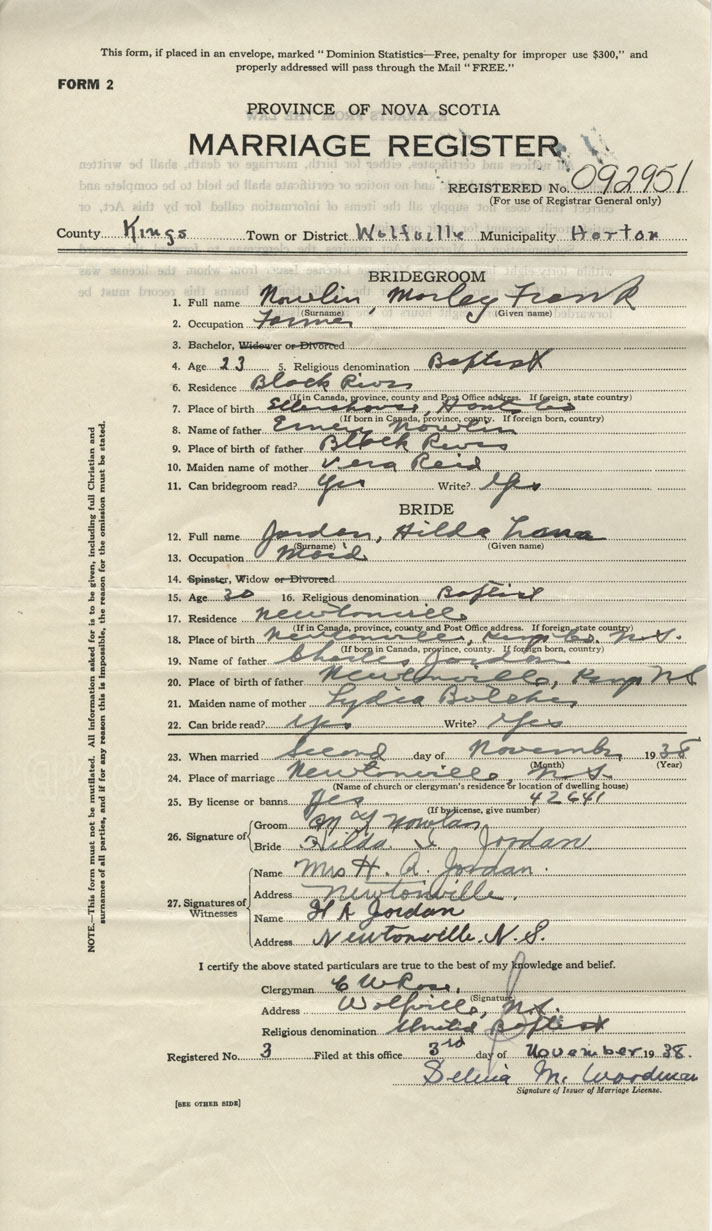 This form, if placed in an envelope, marked "Dominion Statistics—Free, penalty for improper use $300," and
properly addressed will pass through the Mail "FREE."
FORM 2
PROVINCE OF NOVA SCOTIA
MARRIAGE REGISTER
REGISTERED No. 092951
(For use of Registrar General only)
County Kings Town or District Wolfville Municipality Horton
BRIDEGROOM
1. Full name Nowlin, Morley Frank
(Surname) (Given name)
2. Occupation Farmer
3. Bachelor, Widower or Divorced
4. Age 23 5. Religious denomination Baptist
6. Residence Black River
(If in Canada, province, county and Post Office address. If foreign, state country)
7. Place of birth Ellershouse, Hants Co
(If born in Canada, province, county. If foreign born, country)
8. Name of father Emery Nowlin
9. Place of birth of father Black River
10. Maiden name of mother Vera Reid
11. Can bridegroom read? Yes Write? Yes
BRIDE
12. Full name Jordan, Hilda
(Surname) (Given name)
13. Occupation Maid
14. Spinster, Widow or Divorced
15. Age 20 16. Religious denomination Baptist
17. Residence Newtonville
(If in Canada, province, county and Post Office address. If foreign, state country)
18. Place of birth Newtonville, Kings Co. N.S.
(If born in Canada, province, county. If foreign born, country)
19. Name of father Charles Jordan
20. Place of birth of father Newtonville, Kings NS
21. Maiden name of mother Lydia
22. Can bride read? Yes Write? Yes
23. When married Second day of November 1938
(Month) (Year)
24. Place of marriage Newtonville, N.S.
(Name of church or clergyman's residence or location of dwelling house)
25. By license or banns Yes 42641
(If by license, give number)
26. Signature of Groom M F Nowlan
Bride Hilda L Jordan
27. Signatures of Witnesses
Name Mrs H. A. Jordan.
Address Newtonville.
Name H A Jordan
Address Newtonville. N.S.
I certify the above stated particulars are true to the best of my knowledge and belief.
Clergyman C W Rose,
(Signature)
Address Wolfville, N.S.
Religious denomination United Baptist
Registered No. 3 Filed at this office 3rd day of November 1938.
Selina M. Woodman
Signature of Issuer of Marriage License.
[SEE OTHER SIDE]
NOTE.—This form must not be mutilated. All information asked for is to be given, including full Christian and
surnames of all parties, and if for any reason this is impossible, the reason for the omission must be stated.